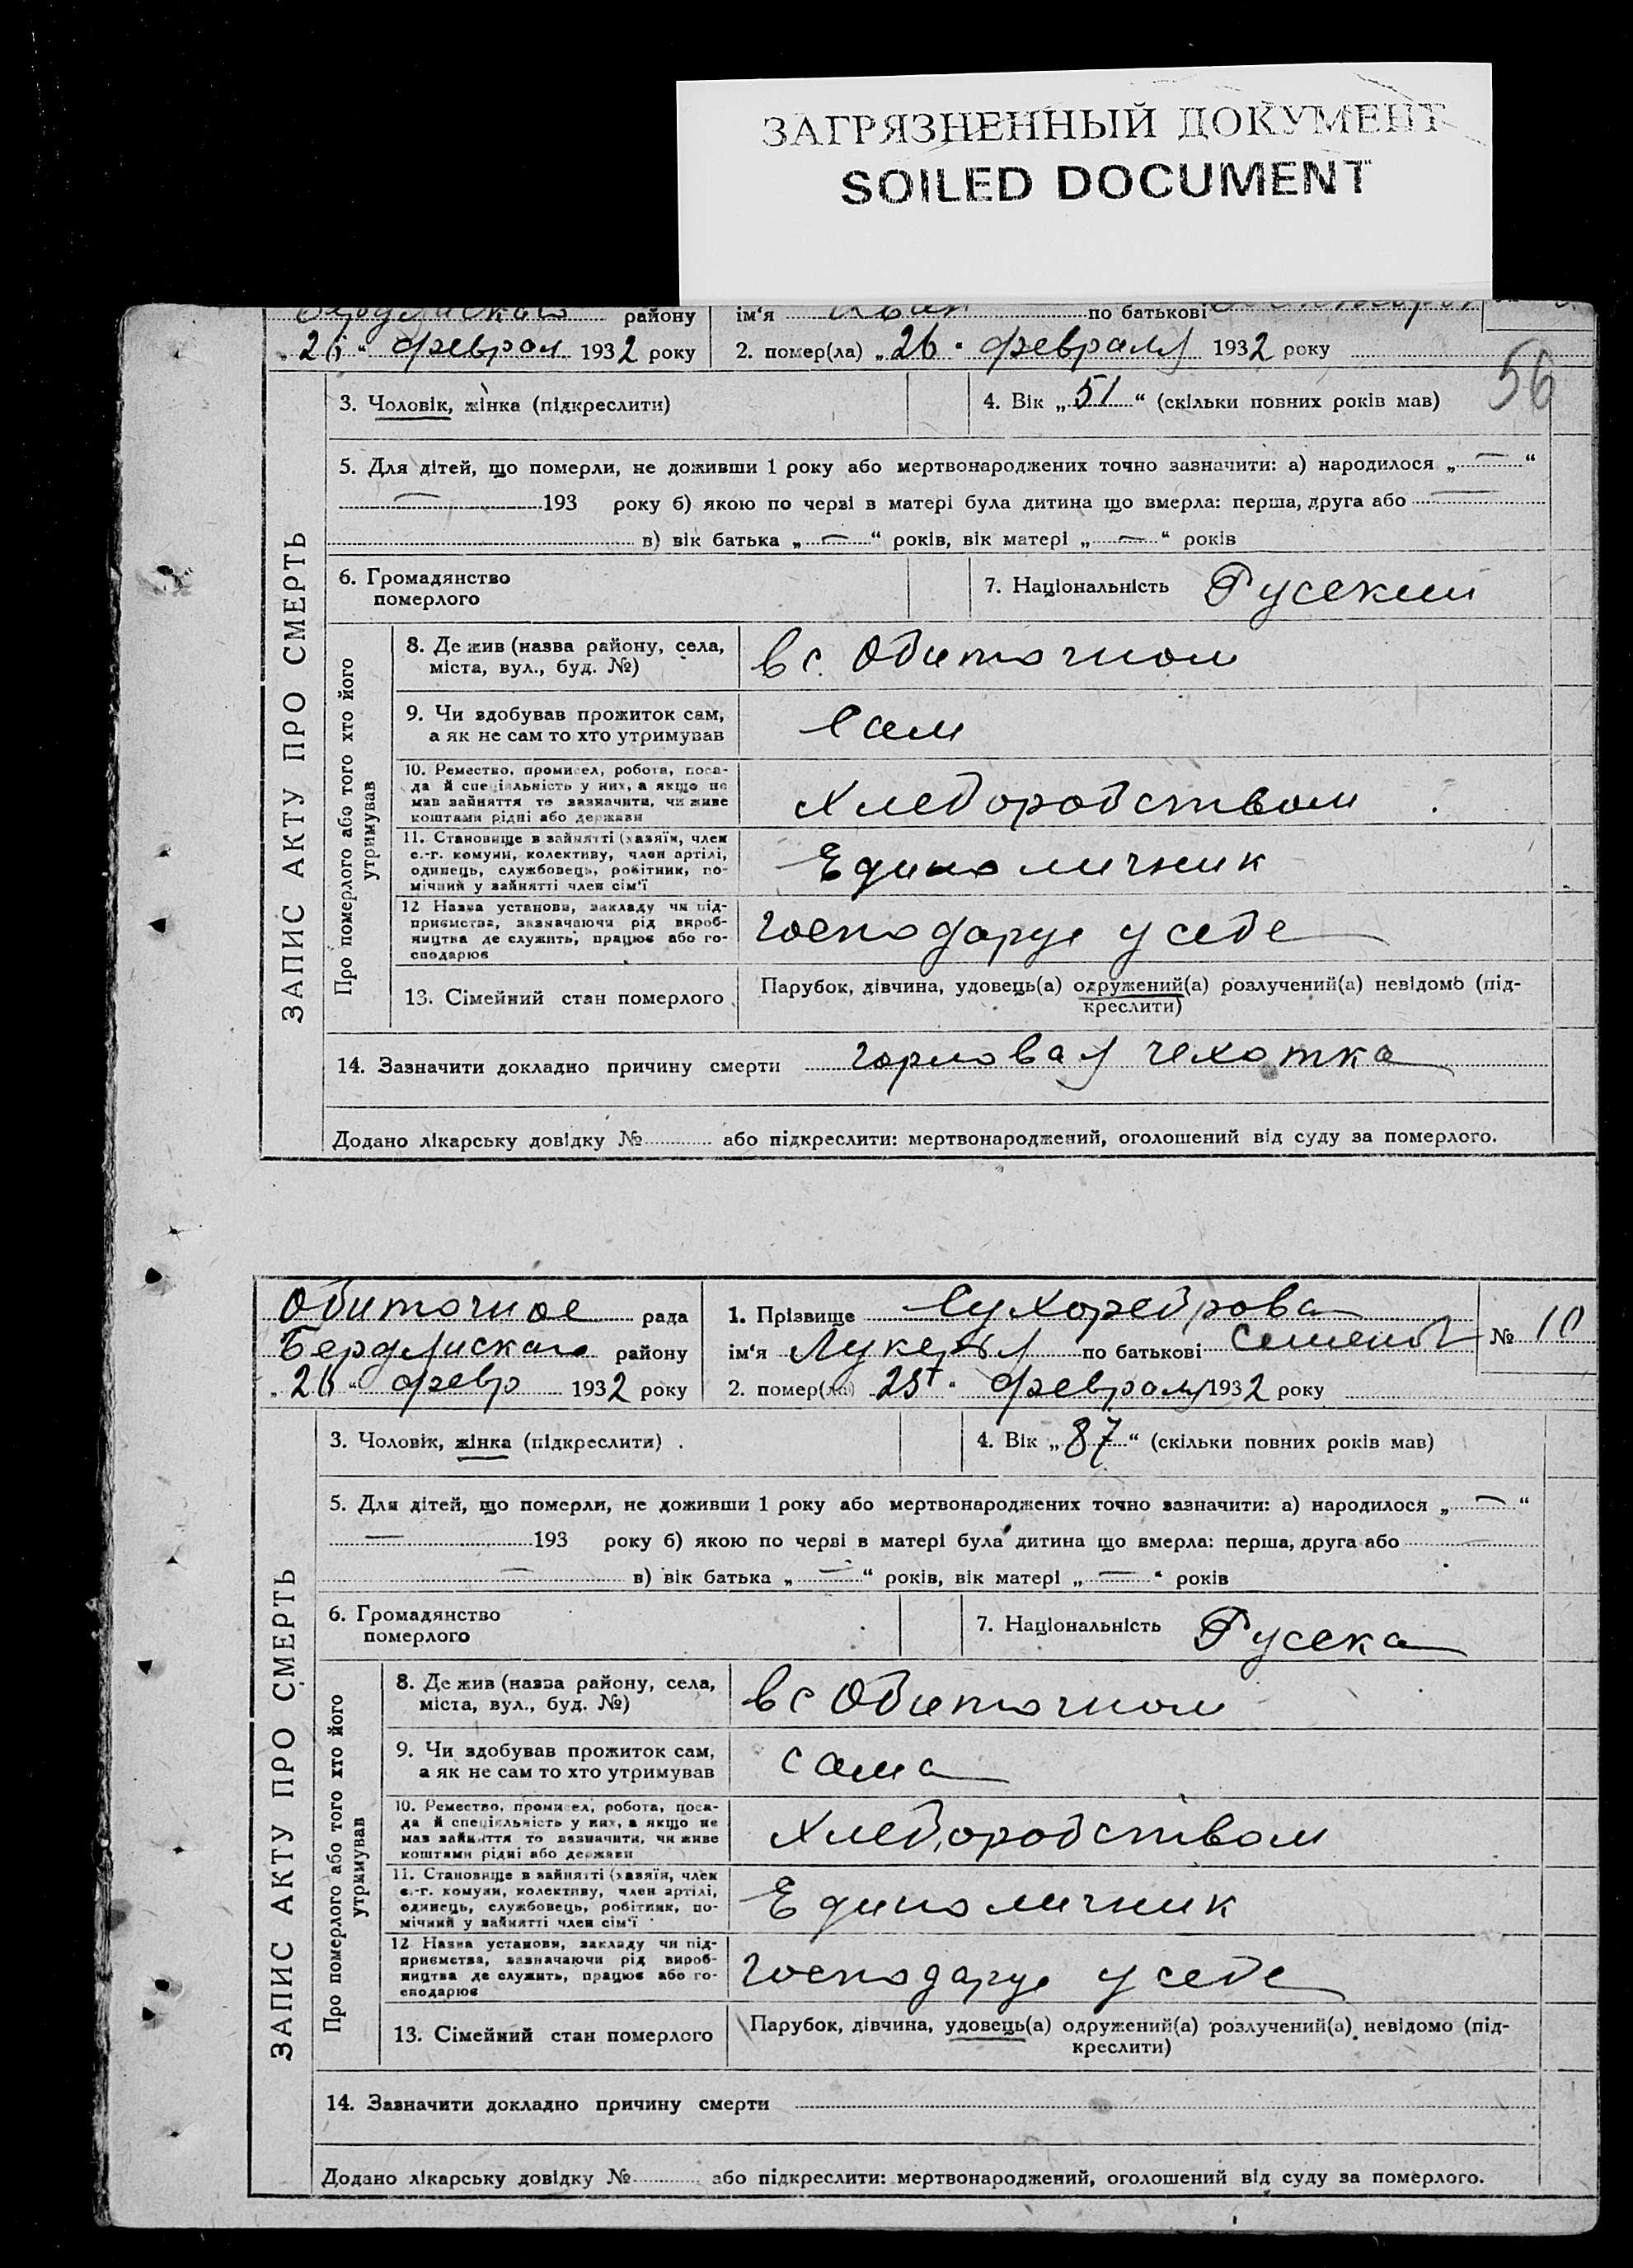 ЗАГРЯЗНЕННЫЙ ДОКУМЕНТ
SOILED DOCUMENT
району ім'я по батькові
„26“ феврал 1932 року 2. помер(ла) „26“ февраля 1932 року
56
3. Чоловік, жінка (підкреслити) 4. Вік „51“ (скільки повних років мав)
5. Для дітей, що померли, не доживши 1 року або мертвонароджених точно зазначити: а) народилося „—“
— 193 року б) якою по черві в матері була дитина що вмерла: перша, друга або —
в) вік батька „—“ років, вік матері „—“ років
6. Громадянство
померлого
7. Національність Русский
ЗАПИС АКТУ ПРО СМЕРТЬ
Про померлого або того хто його
утримував
8. Де жив (назва району, села,
міста, вул., буд. №)
в с. Обиточном
9. Чи здобував прожиток сам,
а як не сам то хто утримував
Сам
10. Ремество, промисел, робота, поса-
да й спеціяльність у них, а якщо не
мав зайняття то зазначити, чи живе
коштами рідні або держави
Хлебородством
11. Становище в зайнятті (хазяїн, член
с.-г. комуни, колективу, член артілі,
одинець, службовець, робітник, по-
мічний у зайнятті член сім'ї
Единоличник
12 Назва установи, закладу чи під-
приємства, зазначаючи рід вироб-
ництва де служить, працює або го-
сподарює
господарує у себе
13. Сімейний стан померлого
Парубок, дівчина, удовець(а) одружений(а) розлучений(а) невідомо (під-
креслити)
14. Зазначити докладно причину смерти горловая чехотка
Додано лікарську довідку № або підкреслити: мертвонароджений, оголошений від суду за померлого.
Обиточное рада 1. Прізвище Сухореброва
Бердянскаго району ім'я Лукерья по батькові Семенов № 10
„26“ февр 1932 року 2. помер(ла) „25“ февраля 1932 року
3. Чоловік, жінка (підкреслити) 4. Вік „87“ (скільки повних років мав)
5. Для дітей, що померли, не доживши 1 року або мертвонароджених точно зазначити: а) народилося „—“
— 193 року б) якою по черві в матері була дитина що вмерла: перша, друга або
— в) вік батька „—“ років, вік матері „—“ років
6. Громадянство
померлого
7. Національність Русска
ЗАПИС АКТУ ПРО СМЕРТЬ
Про померлого або того хто його
утримував
8. Де жив (назва району, села,
міста, вул., буд. №)
в с Обиточном
9. Чи здобував прожиток сам,
а як не сам то хто утримував
сама
10. Ремество, промисел, робота, поса-
да й спеціяльність у них, а якщо не
мав зайняття то зазначити, чи живе
коштами рідні або держави
Хлебородством
11. Становище в зайнятті (хазяїн, член
с.-г. комуни, колективу, член артілі,
одинець, службовець, робітник, по-
мічний у зайнятті член сім'ї
Единоличник
12 Назва установи, закладу чи під-
приємства, зазначаючи рід вироб-
ництва де служить, працює або го-
сподарює
господарує у себе
13. Сімейний стан померлого
Парубок, дівчина, удовець(а) одружений(а) розлучений(а) невідомо (під-
креслити)
14. Зазначити докладно причину смерти
Додано лікарську довідку № або підкреслити: мертвонароджений, оголошений від суду за померлого.